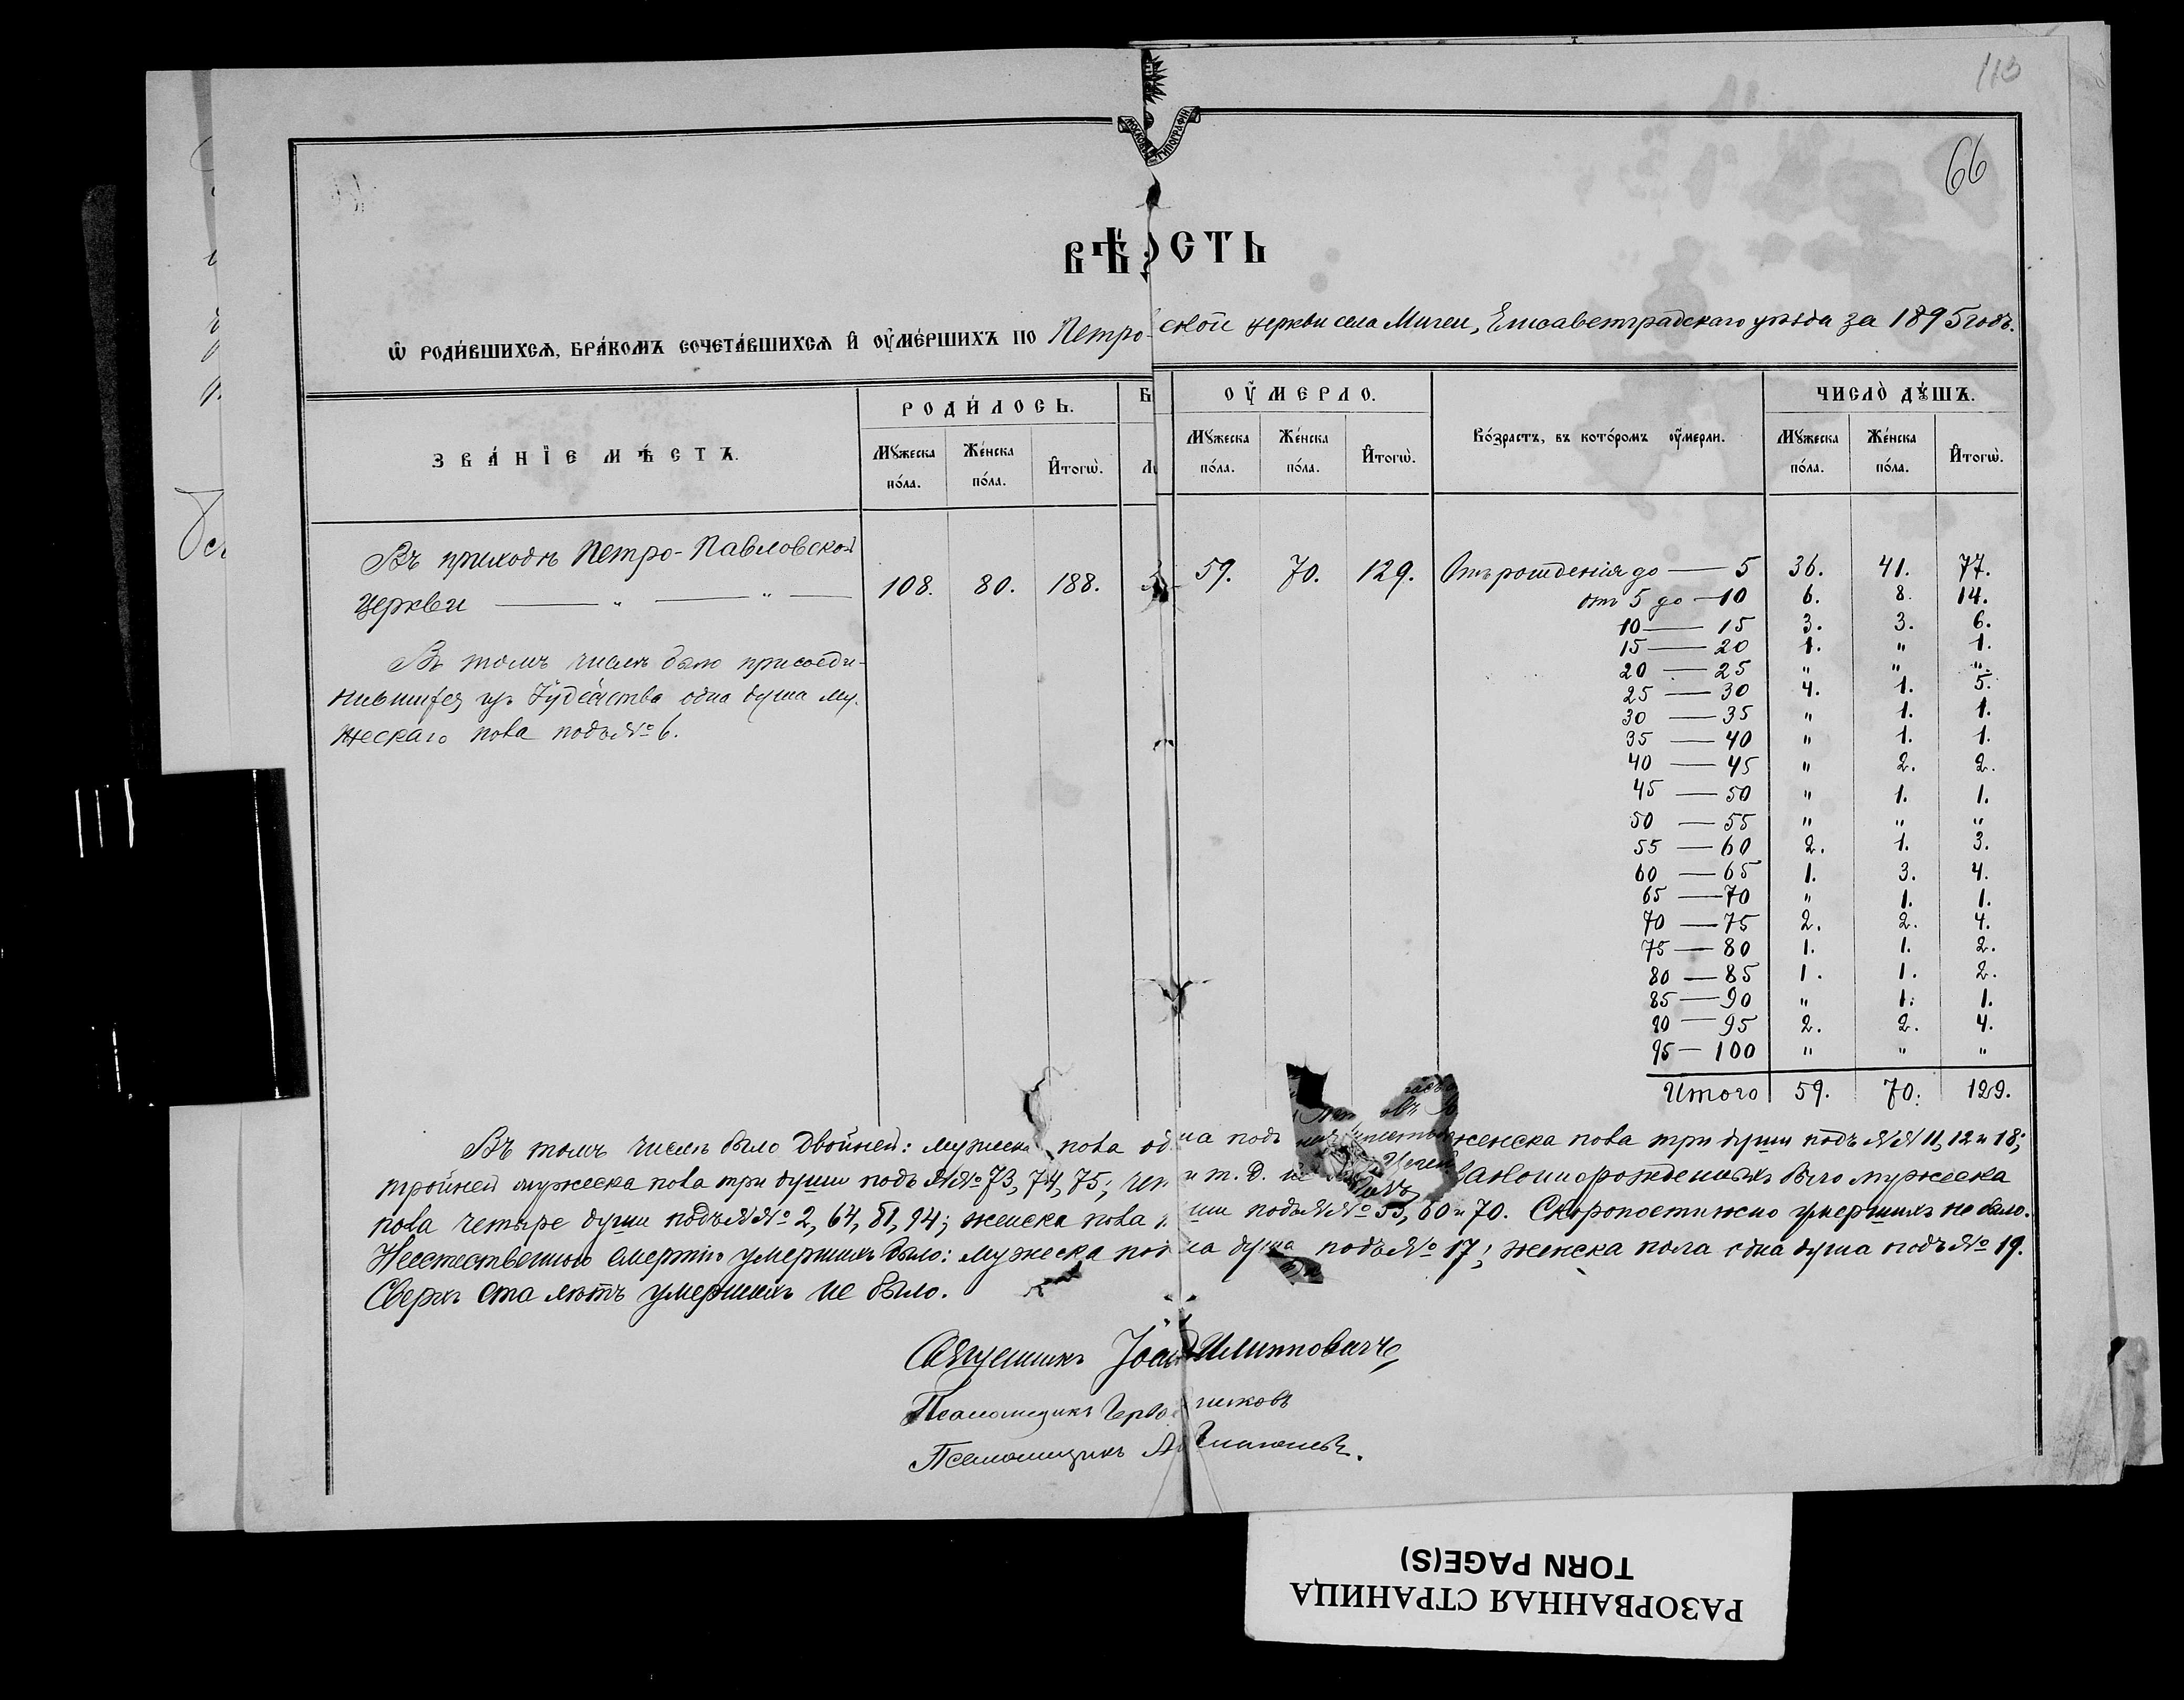 113
66
ВѢ СТЬ
Ѡ РОДИ́ВШИХСѦ, БРА́КОМЪ СОЧЕТА́ВШИХСѦ И҆ ОУ҆МЕ́РШИХЪ ПО Петро- ской церкви села Мигеи, Елисаветградскаго уѣзда за 1895 годъ.
ЗВА́НЇЕ МѢ́СТА.
РОДИ́ЛОСЬ.
Мꙋжеска по́ла.
Же́нска по́ла.
И҆тогѡ̀.
Б
ОУ҆́МЕРЛО.
Мꙋжеска по́ла.
Же́нска по́ла.
И҆тогѡ̀.
Во́зрастъ, въ кото́ромъ оу҆́мерли.
ЧИСЛО̀ ДꙊ́ШЪ.
Мꙋжеска по́ла.
Же́нска по́ла.
И҆тогѡ̀.
Въ приходѣ Петро-Павловской
Церкви — „ — „ — 108. 80. 188.
59. 70. 129.
Въ томъ числѣ было присоеди-
нившихся изъ Іудейства одна душа му-
жескаго пола подъ № 6.
Отъ рожденія до — 5 36. 41. 77.
отъ 5 до — 10 6. 8. 14.
10 — 15 3. 3. 6.
15 — 20 1. „ 1.
20 — 25 „ „ „
25 — 30 4. 1. 5.
30 — 35 „ 1. 1.
35 — 40 „ 1. 1.
40 — 45 „ 2. 2.
45 — 50 „ 1. 1.
50 — 55 „ „ „
55 — 60 2. 1. 3.
60 — 65 1. 3. 4.
65 — 70 „ 1. 1.
70 — 75 2. 2. 4.
75 — 80 1. 1. 2.
80 — 85 1. 1. 2.
85 — 90 „ 1. 1.
90 — 95 2. 2. 4.
95 — 100 „ „ „
Итого 59. 70. 129.
Въ томъ числѣ было двойней: мужеска пола од на подъ женска пола три души подъ №№ 11, 12 и 18;
тройней мужеска пола три души подъ №№ 73, 74, 75; и т. д. Законнорожденныхъ было мужеска
пола четыре души подъ №№ 2, 64, 81, 94; женска пола ши подъ №№ 55, 60 и 70. Скоропостижно умершихъ не было.
Неестественною смертію умершихъ было: мужеска пол на душа подъ № 17; женска пола одна душа подъ № 19.
Сверхъ ста лѣтъ умершихъ не было.
Священникъ Іоан Шлипповичъ
Псаломщикъ
Псаломщикъ
РАЗОРВАННАЯ СТРАНИЦА
TORN PAGE(S)